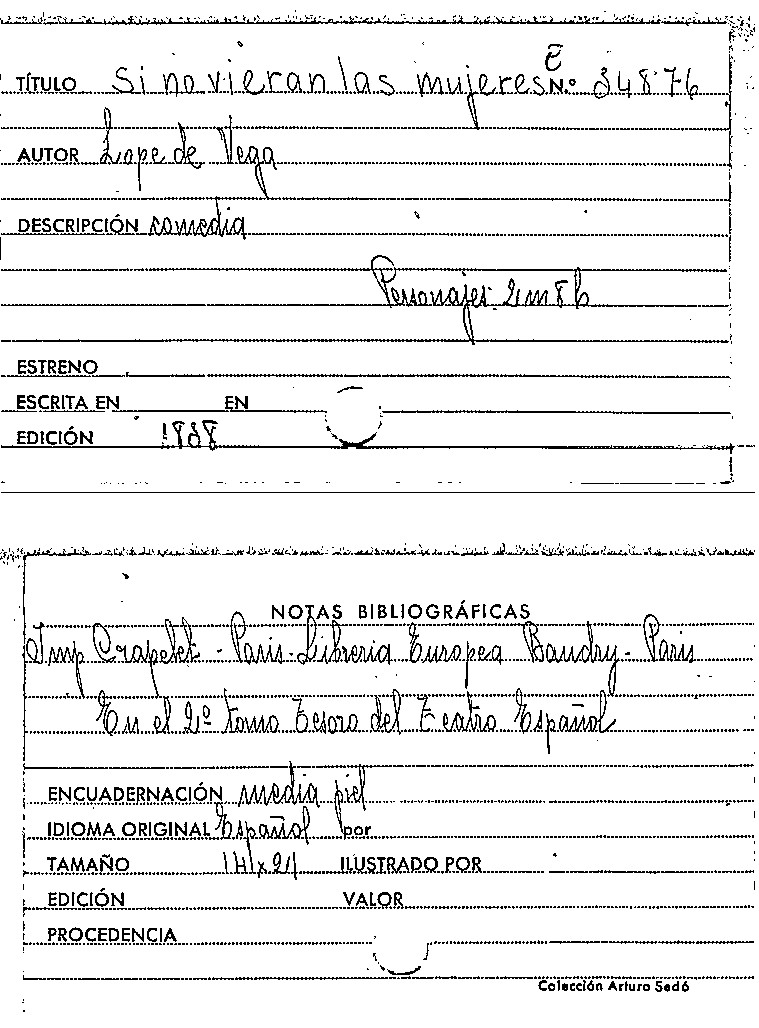 TÍTULO Si no vieran las mujeres N.º 34876
AUTOR Lope de Vega
DESCRIPCIÓN comedia
Personajes 2 m 8 h
ESTRENO
ESCRITA EN EN
EDICIÓN 1838
NOTAS BIBLIOGRÁFICAS
Imp Crapelet - Paris - Libreria Europea Baudry - Paris
En el 2º tomo Tesoro del Teatro Español
ENCUADERNACIÓN media piel
IDIOMA ORIGINAL Español por
TAMAÑO 14x21 ILUSTRADO POR
EDICIÓN VALOR
PROCEDENCIA
Colección Arturo Sedó